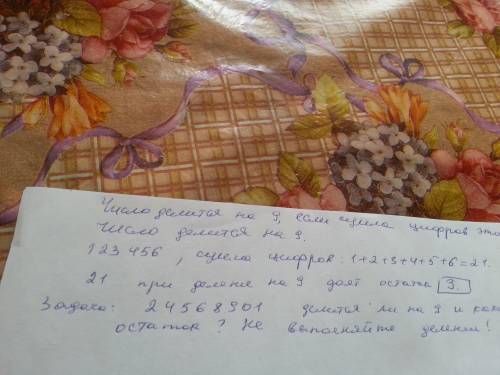 Число делится на 9, если сумма цифров это
число делится на 9.
123456, сумма цифров: 1+2+3+4+5+6=21.
21 при деление на 9 даёт остаток 3.
Задача: 24568901 делится ли на 9 и как
остаток? Не выполняйте делении!